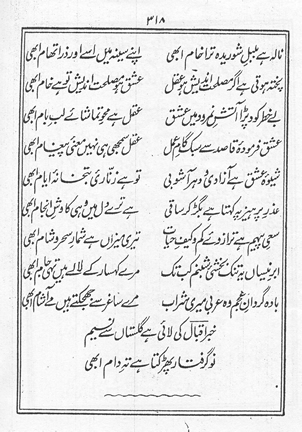 ۳۱۸
نالہ ہے بلبلِ شوریدہ ترا خام ابھی اپنے سینہ میں اسے اور ذرا تھام ابھی
پختہ ہوتی ہے اگر مصلحت اندیش ہو عقل عشق ہو مصلحت اندیش تو ہے خام ابھی
بے خطر کود پڑا آتشِ نمرود میں عشق عقل ہے محوِ تماشائے لبِ بام ابھی
عشق فرمودۂ قاصد سے سبک گامِ عمل عقل سمجھی ہی نہیں معنیِ پیغام ابھی
شیوۂ عشق ہے آزادی و دہر آشوبی تو ہے زناریِ بتخانۂ ایام ابھی
عذرِ پرہیز پہ کہتا ہے بگڑ کر ساقی ہے ترے دل میں وہی کاوشِ انجام ابھی
سعیِ پیہم ہے ترازوئے کم و کیفِ حیات تیری میزاں ہے شمارِ سحر و شام ابھی
ابرِ نیساں یہ تنک بخشیِ شبنم کب تک مرے کہسار کے لالے ہیں تہی جام ابھی
بادہ گردانِ عجم وہ عربی میری شراب مرے ساغر سے جھجکتے ہیں مے آشام ابھی
خبر اقبال کی لائی ہے گلستاں سے نسیم
نو گرفتار پھڑکتا ہے تہِ دام ابھی